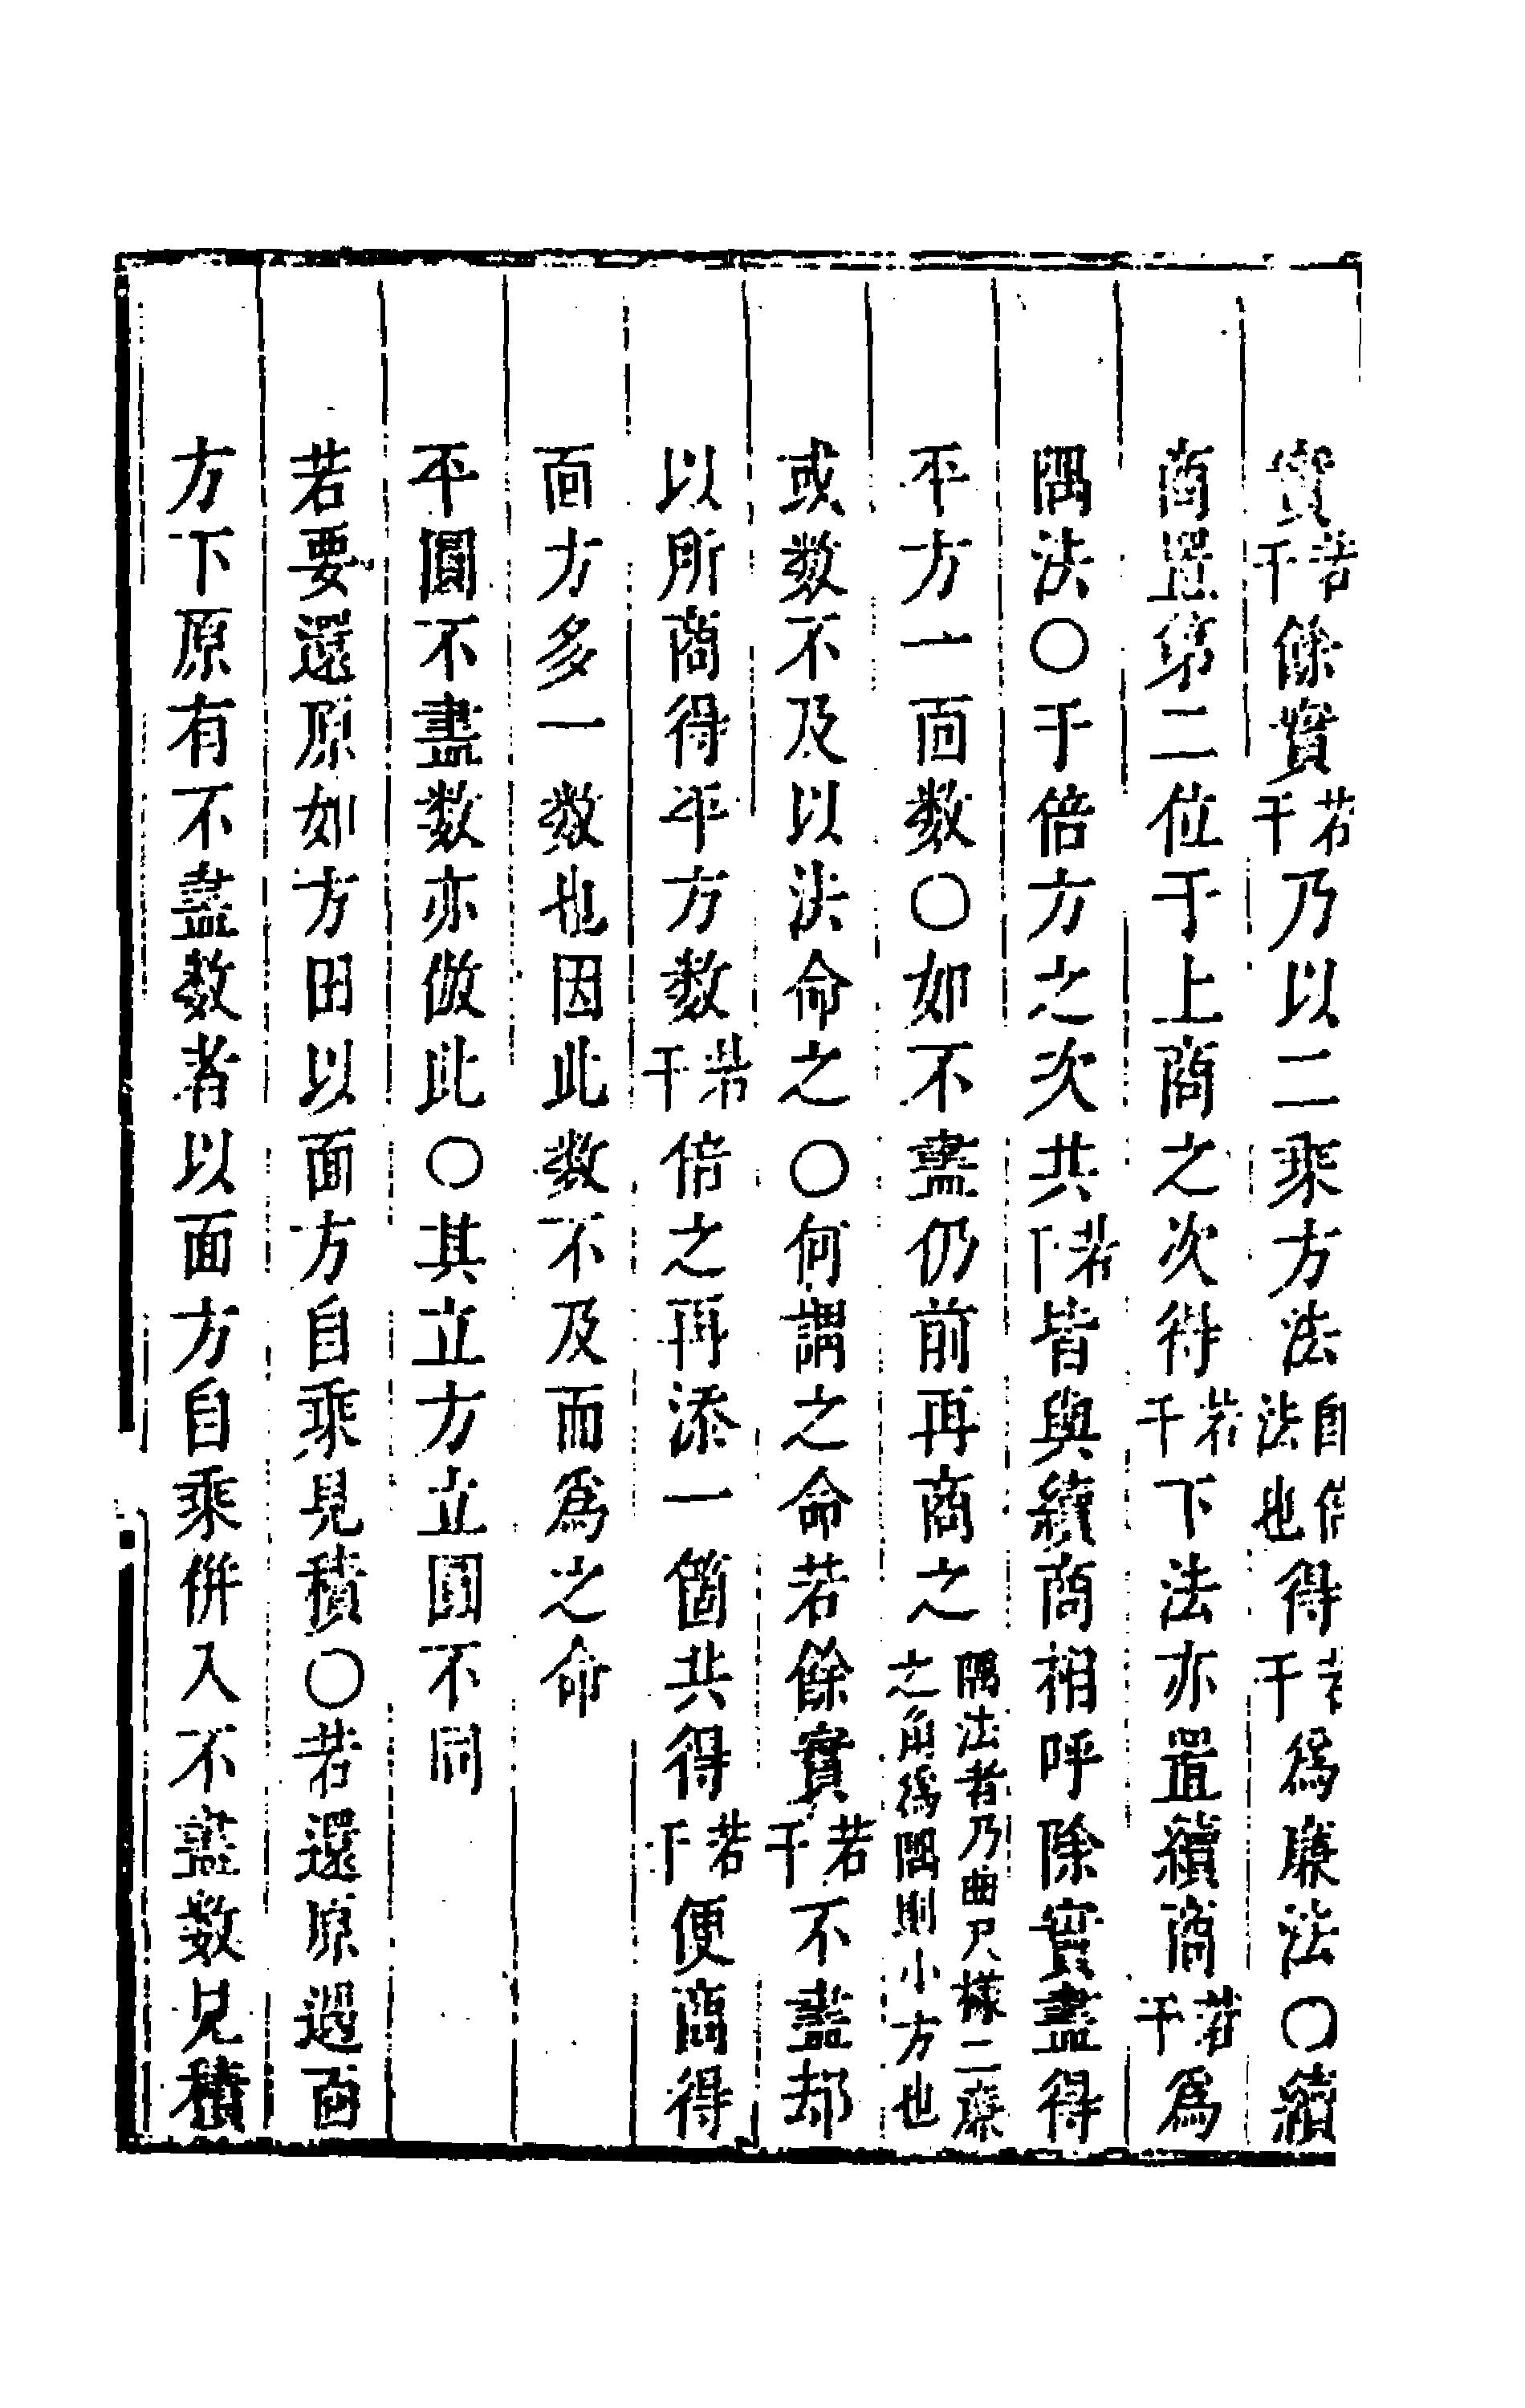 實若干餘實若干乃以二乘方法自倍法也得若干爲廉法〇續
商置第二位于上商之次得若干下法亦置續商若干爲
隅法〇于倍方之次共若干皆與續商相呼除實盡得
平方一面数〇如不盡仍前再商之隅法者乃曲尺樣二廉之角爲隅則小方也
或数不及以法命之〇何謂之命若餘實若干不盡却
以所商得平方数若干倍之再添一箇共得若干便商得
面方多一数也因此数不及而爲之命
平圓不盡数亦倣此〇其立方立圓不同
若要還原如方田以面方自乘見積〇若還原遇面
方下原有不盡数者以面方自乘併入不盡数見積